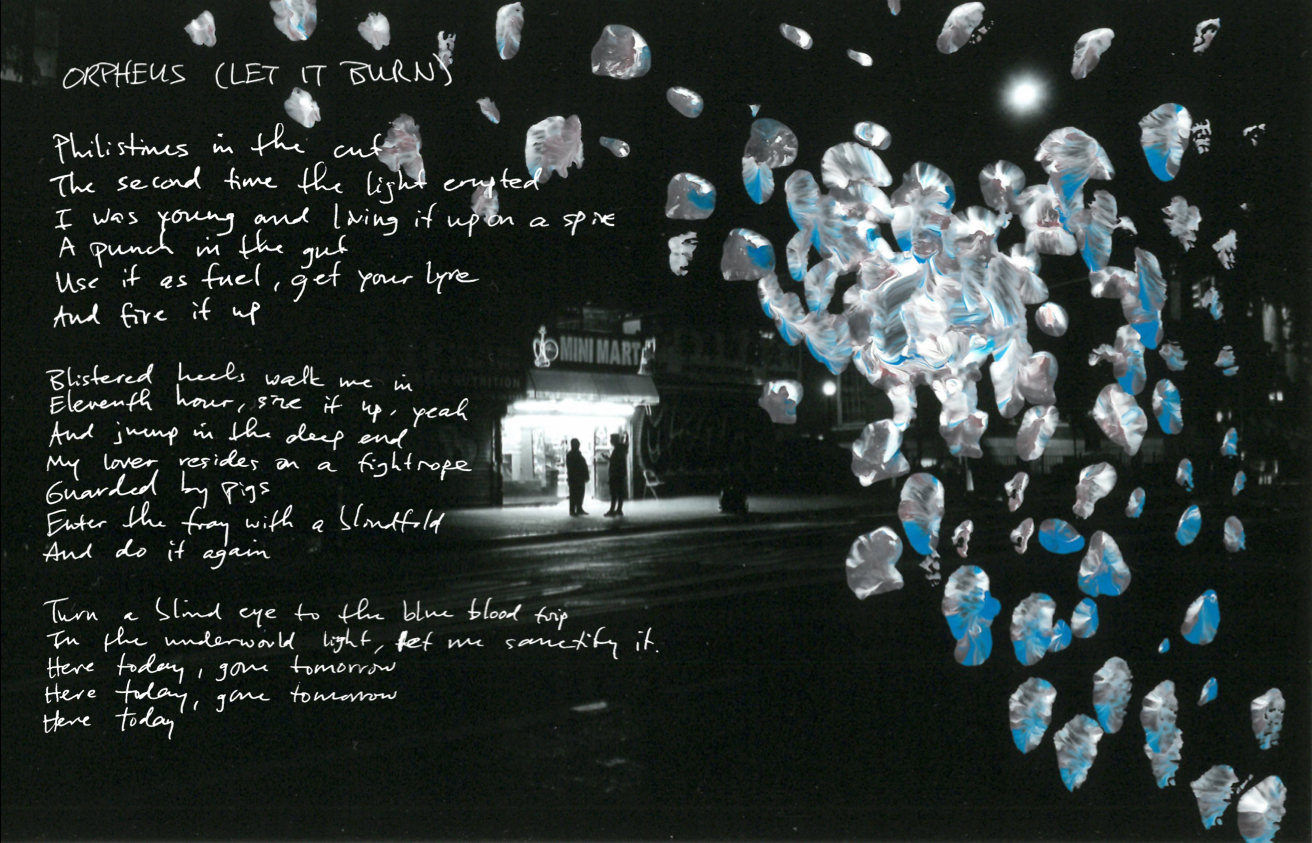 ORPHEUS (LET IT BURN)
Philistines in the cut
The second time the light erupted
I was young and living it up on a spire
A punch in the gut
Use it as fuel, get your lyre
And fire it up
Blistered heels walk me in
Eleventh hour, size it up, yeah
And jump in the deep end
My lover resides on a tightrope
Guarded by pigs
Enter the fray with a blindfold
And do it again
Turn a blind eye to the blue blood trip
In the underworld light, let me sanctify it.
Here today, gone tomorrow
Here today, gone tomorrow
Here today
MINI MART
NUTRITION